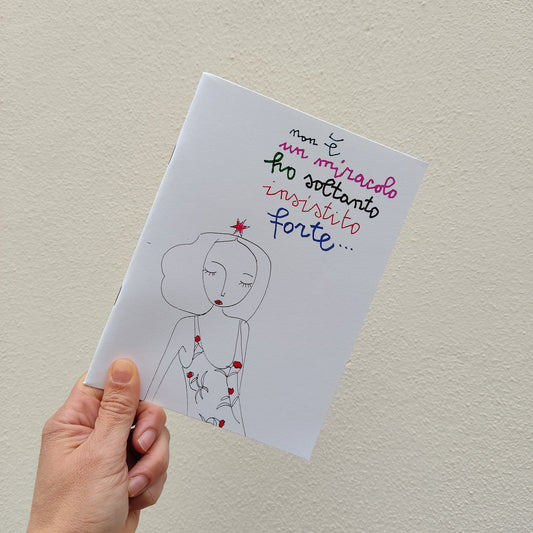 non è
un miracolo
ho soltanto
insistito
forte...